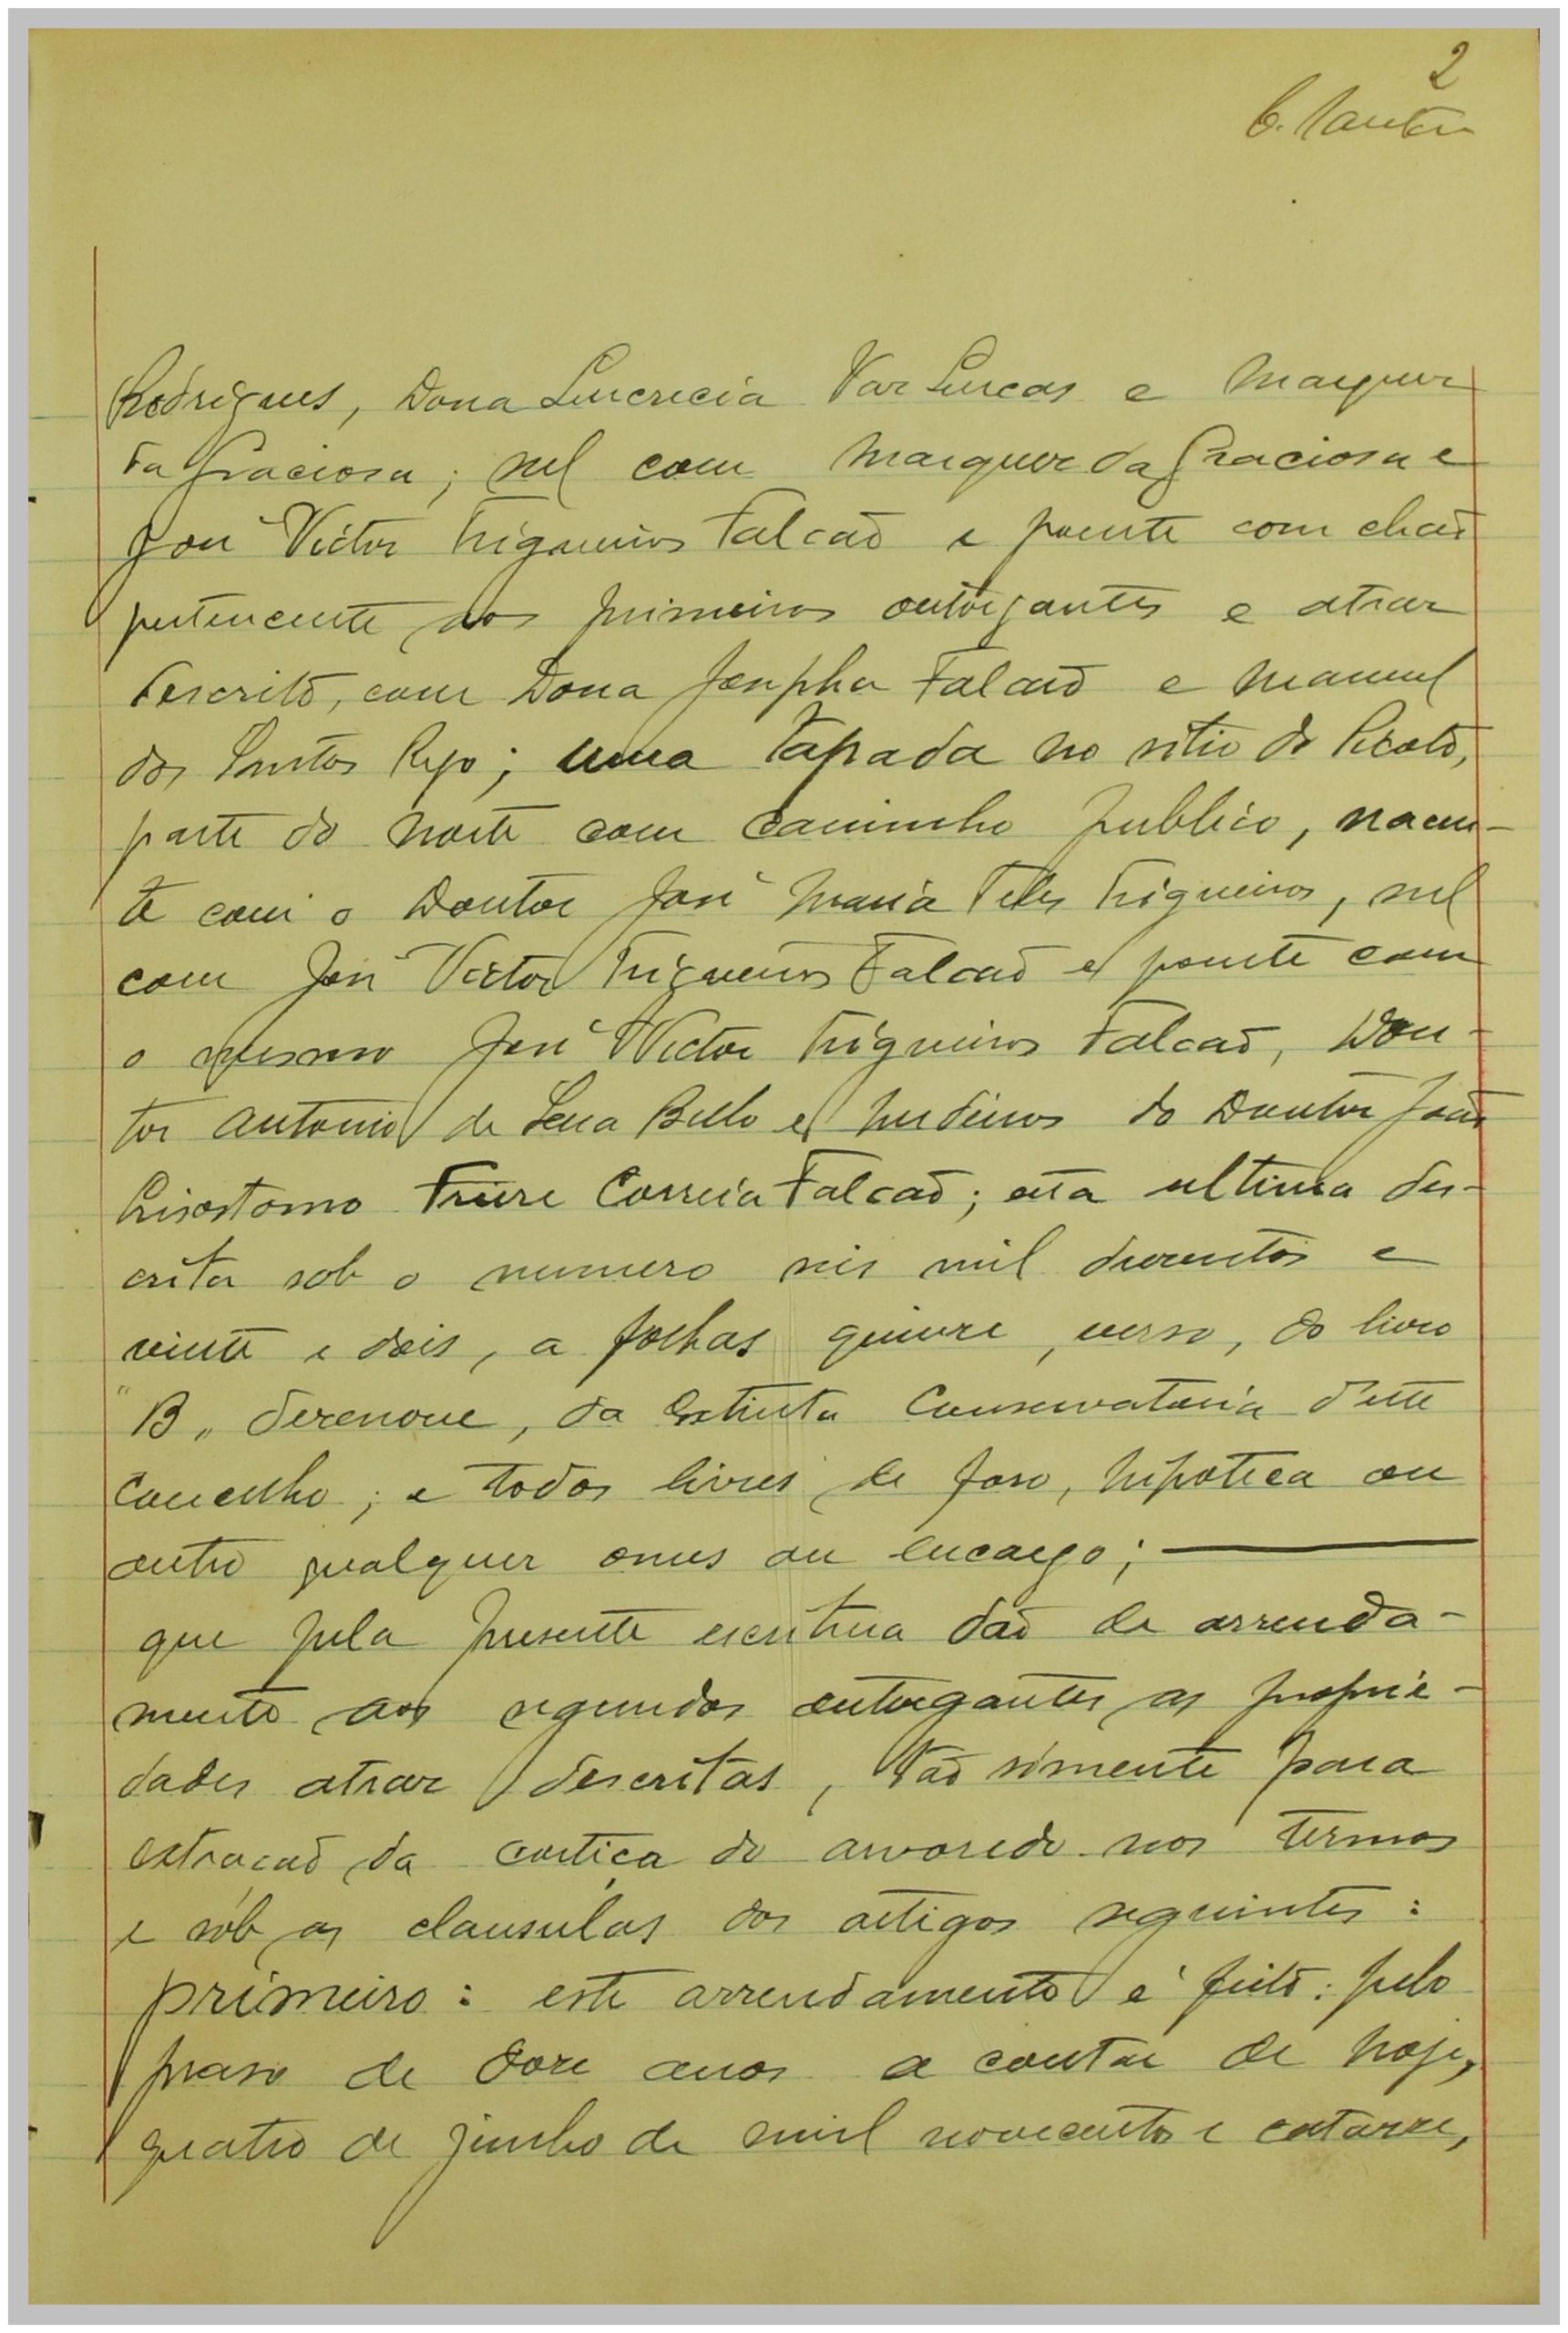 2
Rodrigues, Dona Lucrecia Vaz Lucas e Marquez
da Graciosa; sul com Marquez da Graciosa e
José Victor Trigueiros Falcaõ e poente com chaõ
pertencente aos primeiros outorgantes e atraz
descrito, com Dona Josepha Falcaõ e Manuel
dos Santos Rijo; uma tapada no sitio do Picoto,
parte do norte com caminho publico, nacen-
te com o Doutor José Maria Teles Trigueiros, sul
com José Victor Trigueiros Falcaõ e poente com
o mesmo José Victor Trigueiros Falcaõ, Dou-
tor Antonio de Sena Bello e herdeiros do Doutor Joaõ
Crisostomo Freire Correia Falcaõ; esta ultima des-
crita sob o numero seis mil duzentos e
vinte e dois, a folhas quinze, verso, do livro
"B" dezenove, da extinta Conservatoria d'este
concelho; e todos livres de foro, hipoteca ou
outro qualquer onus ou encargo;
que pela presente escritura daõ de arrenda-
mento aos segundos outorgantes as proprie-
dades atraz descritas, taõ sómente para
extracaõ da cortiça do arvoredo nos termos
e sób as clausulas dos artigos seguintes:
primeiro: este arrendamento é feito: pelo
praso de doze anos a contar de hoje,
quatro de junho de mil novecentos e catorze,